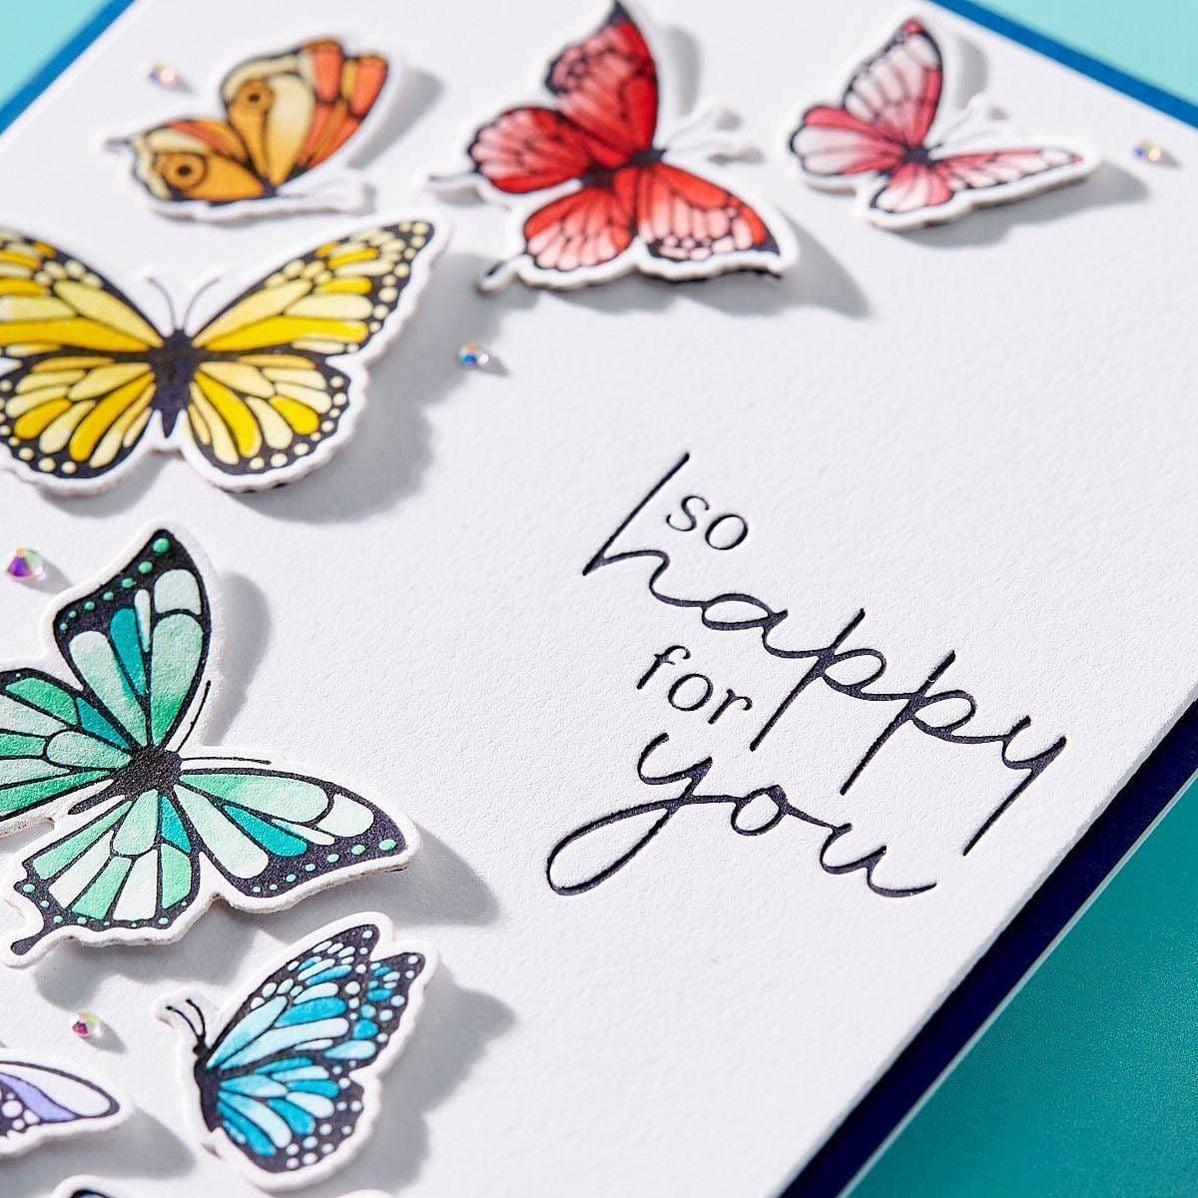 so
happy
for
you